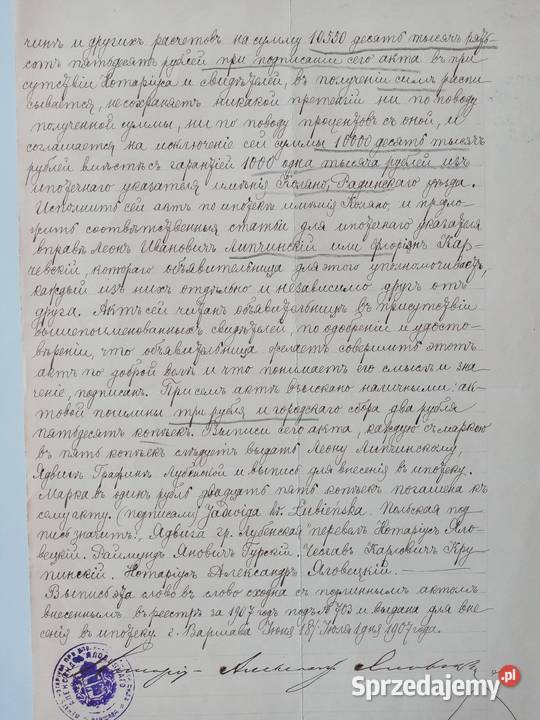 чинъ и другихъ расчетовъ на сумму 10550 десять тысячъ пять-
сотъ пятьдесятъ рублей при подписаніи сего акта въ при-
сутствіи Нотаріуса и свидѣтелей, въ полученіи симъ распи-
сывается, не сохраняетъ никакой претензіи ни по поводу
полученной суммы, ни по поводу процентовъ съ оной, и
соглашается на исключеніе сей суммы 10000 десять тысячъ
рублей вмѣстѣ съ гарантіей 1000 одна тысяча рублей изъ
ипотечнаго указателя имѣнія Коляно, Радинскаго уѣзда.
Исполнить сей актъ по ипотекѣ имѣнія Коляно, и предло-
жить соотвѣтственныя статьи для ипотечнаго указателя
вправѣ Леонъ Ивановичъ Липчинскій или Флоріанъ Кар-
чевскій, котораго объявительница для этого уполномочиваетъ,
каждый изъ нихъ отдѣльно и независимо другъ отъ
друга. Актъ сей читанъ объявительницѣ въ присутствіи
вышепоименованныхъ свидѣтелей, по одобреніи и удосто-
вѣреніи, что объявительница желаетъ совершить этотъ
актъ по доброй волѣ и что понимаетъ его смыслъ и зна-
ченіе, подписанъ. При семъ актѣ взыскано наличными: ак-
товой пошлины три рубля и городскаго сбора два рубля
пятьдесятъ копѣекъ. Выписи сего акта, каждую съ маркою
въ пять копѣекъ слѣдуетъ выдать Леону Липчинскому,
Ядвигѣ Графинѣ Лубенской и выпись для внесенія въ ипотеку.
Марка въ одинъ рубль двадцать пять копѣекъ погашена къ
сему акту. (подписали) Jadwiga hr. Łubieńska. Польская под-
пись значитъ: „Ядвига гр. Лубенская" перевелъ Нотаріусъ Яло-
вецкій. Раймундъ Яновичъ Гурскій. Чеславъ Карловичъ Кру-
пинскій. Нотаріусъ Александръ Яловецкій.
Выпись эта слово въ слово сходна съ подлиннымъ актомъ
внесеннымъ въ реестръ за 1907 годъ подъ № 703 и выдана для вне-
сенія въ ипотеку. г. Варшава Іюня 18/Іюля 1 дня 1907 года.
Нотаріусъ Александръ Яловецкій
Sprzedajemy.pl